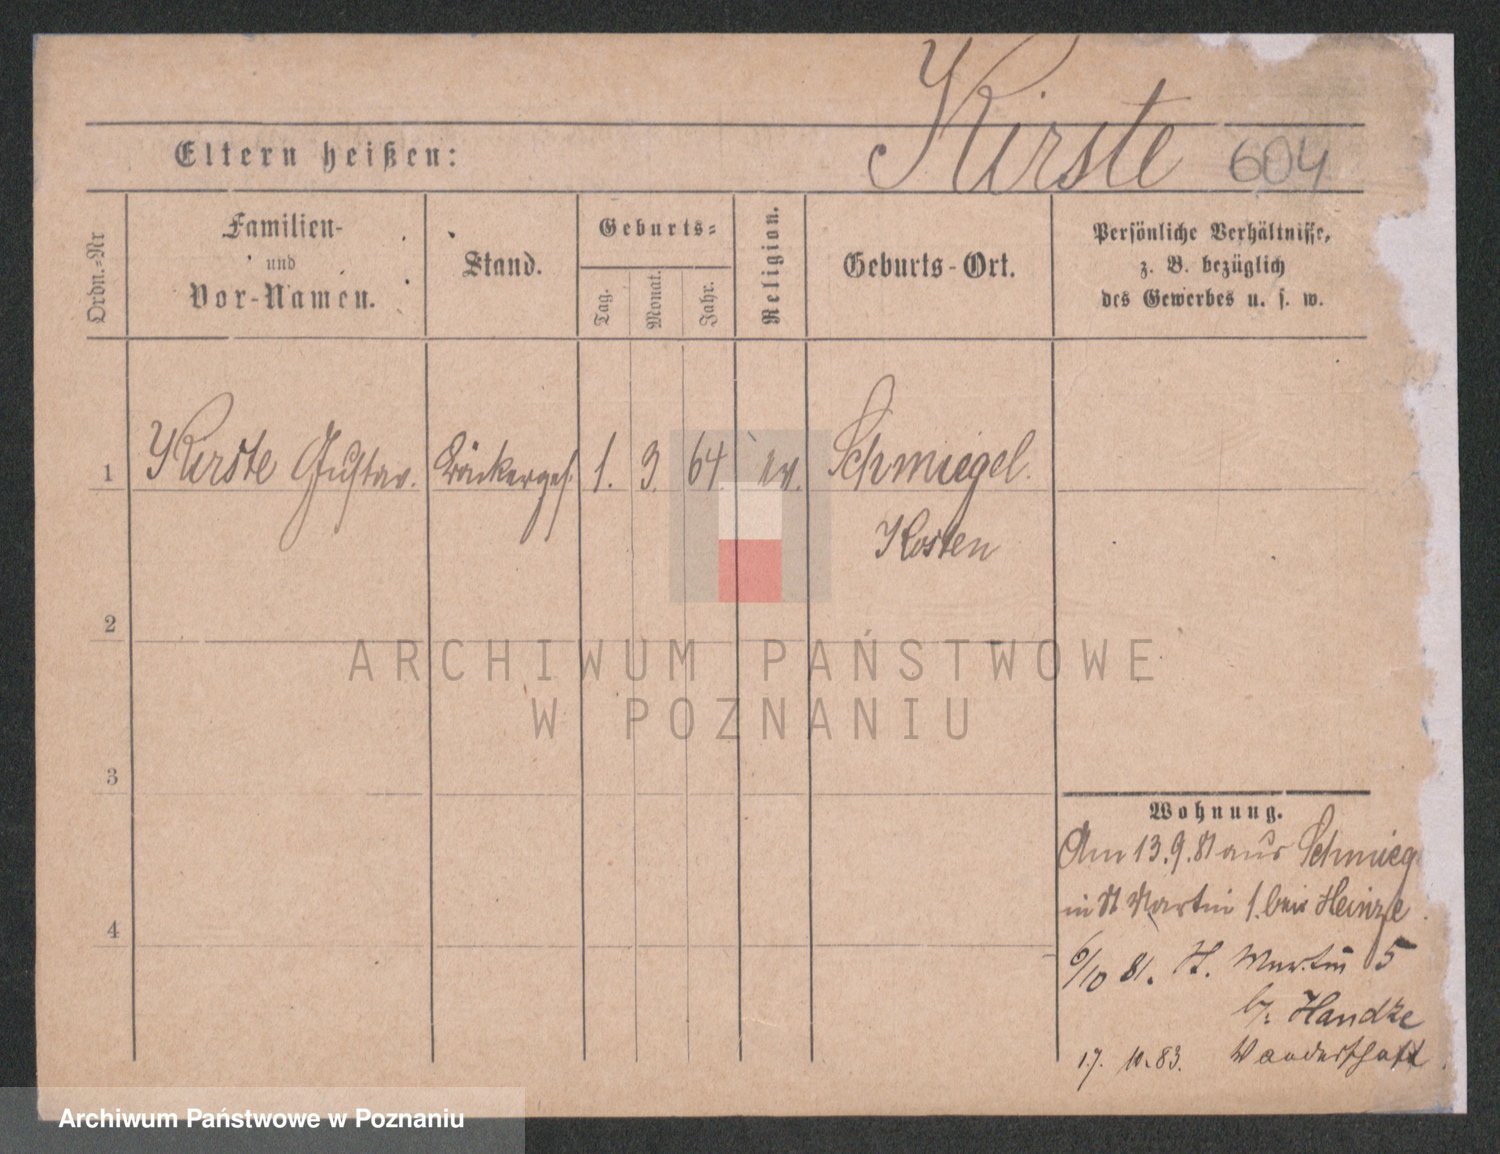 Kirste
Eltern heißen:
604
Ordn.-Nr
Familien-
und
Vor-Namen.
Stand.
Geburts-
Tag.
Monat.
Jahr.
Religion.
Geburts-Ort.
Persönliche Verhältnisse,
z. B. bezüglich
des Gewerbes u. s. w.
1
Kirste Gustav.
Bäckerges.
1.
3.
64
ev.
Schmiegel.
Kosten
2
ARCHIWUM PAŃSTWOWE
W POZNANIU
3
Wohnung.
Am 13.9.81 aus Schmieg
in St Martin 1. bei Heinze
4
6/10 81. St. Martin 5
b. Handke
17. 10. 83. Wanderschaft
Archiwum Państwowe w Poznaniu